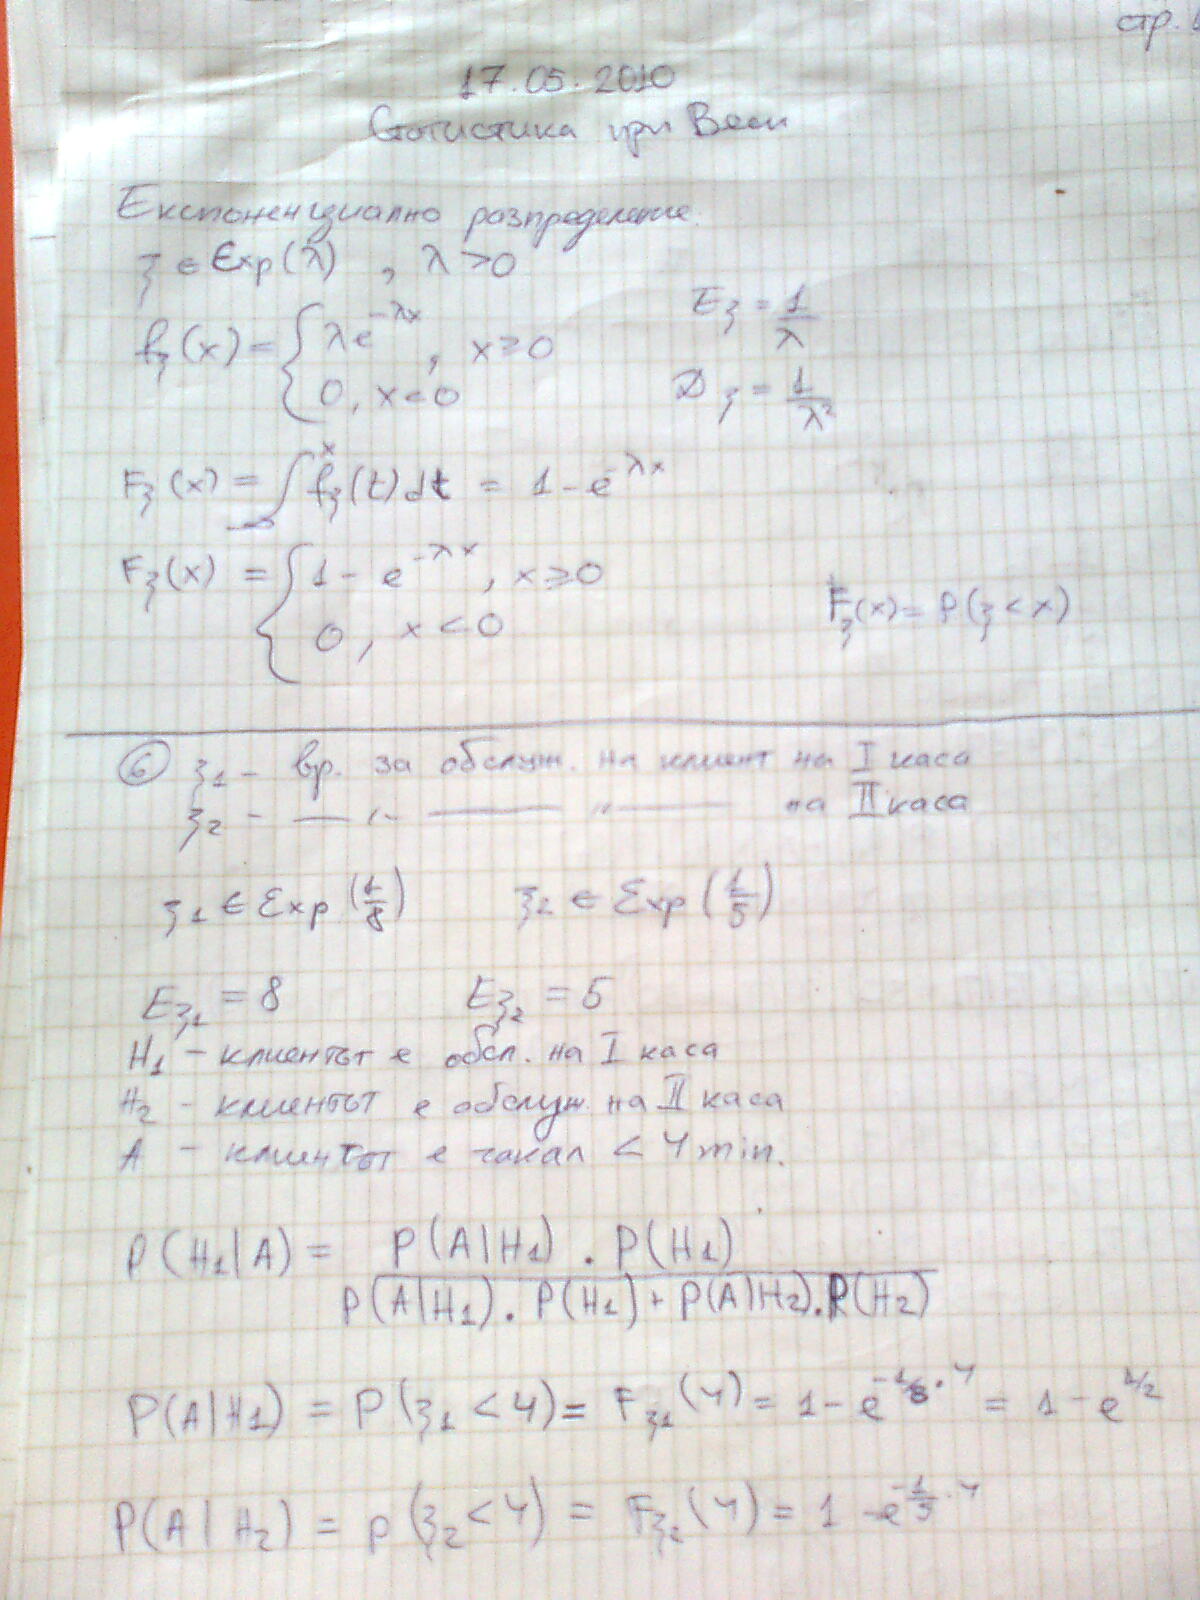 стр.
17.05.2010
Статистика при Веси
Експоненциално разпределение.
ξ ∈ Exp(λ) , λ > 0
f_ξ(x) = { λe^{-λx}, x ≥ 0
0, x < 0
Eξ = 1/λ
Dξ = 1/λ²
F_ξ(x) = ∫_{-∞}^{x} f_ξ(t)dt = 1 - e^{-λx}
F_ξ(x) = { 1 - e^{-λx}, x ≥ 0
0, x < 0
F_ξ(x) = P(ξ < x)
⑥ ξ1 - вр. за обслуж. на клиент на I каса
ξ2 - — " — — " — на II каса
ξ1 ∈ Exp(1/8) ξ2 ∈ Exp(1/5)
Eξ1 = 8 Eξ2 = 5
H1 - клиентът е обсл. на I каса
H2 - клиентът е обслуж. на II каса
A - клиентът е чакал < 4 min.
P(H1|A) = P(A|H1) . P(H1)
P(A|H1) . P(H1) + P(A|H2) . P(H2)
P(A|H1) = P(ξ1 < 4) = F_ξ1(4) = 1 - e^{-1/8 . 4} = 1 - e^{1/2}
P(A|H2) = p(ξ2 < 4) = F_ξ2(4) = 1 - e^{-1/5 . 4}